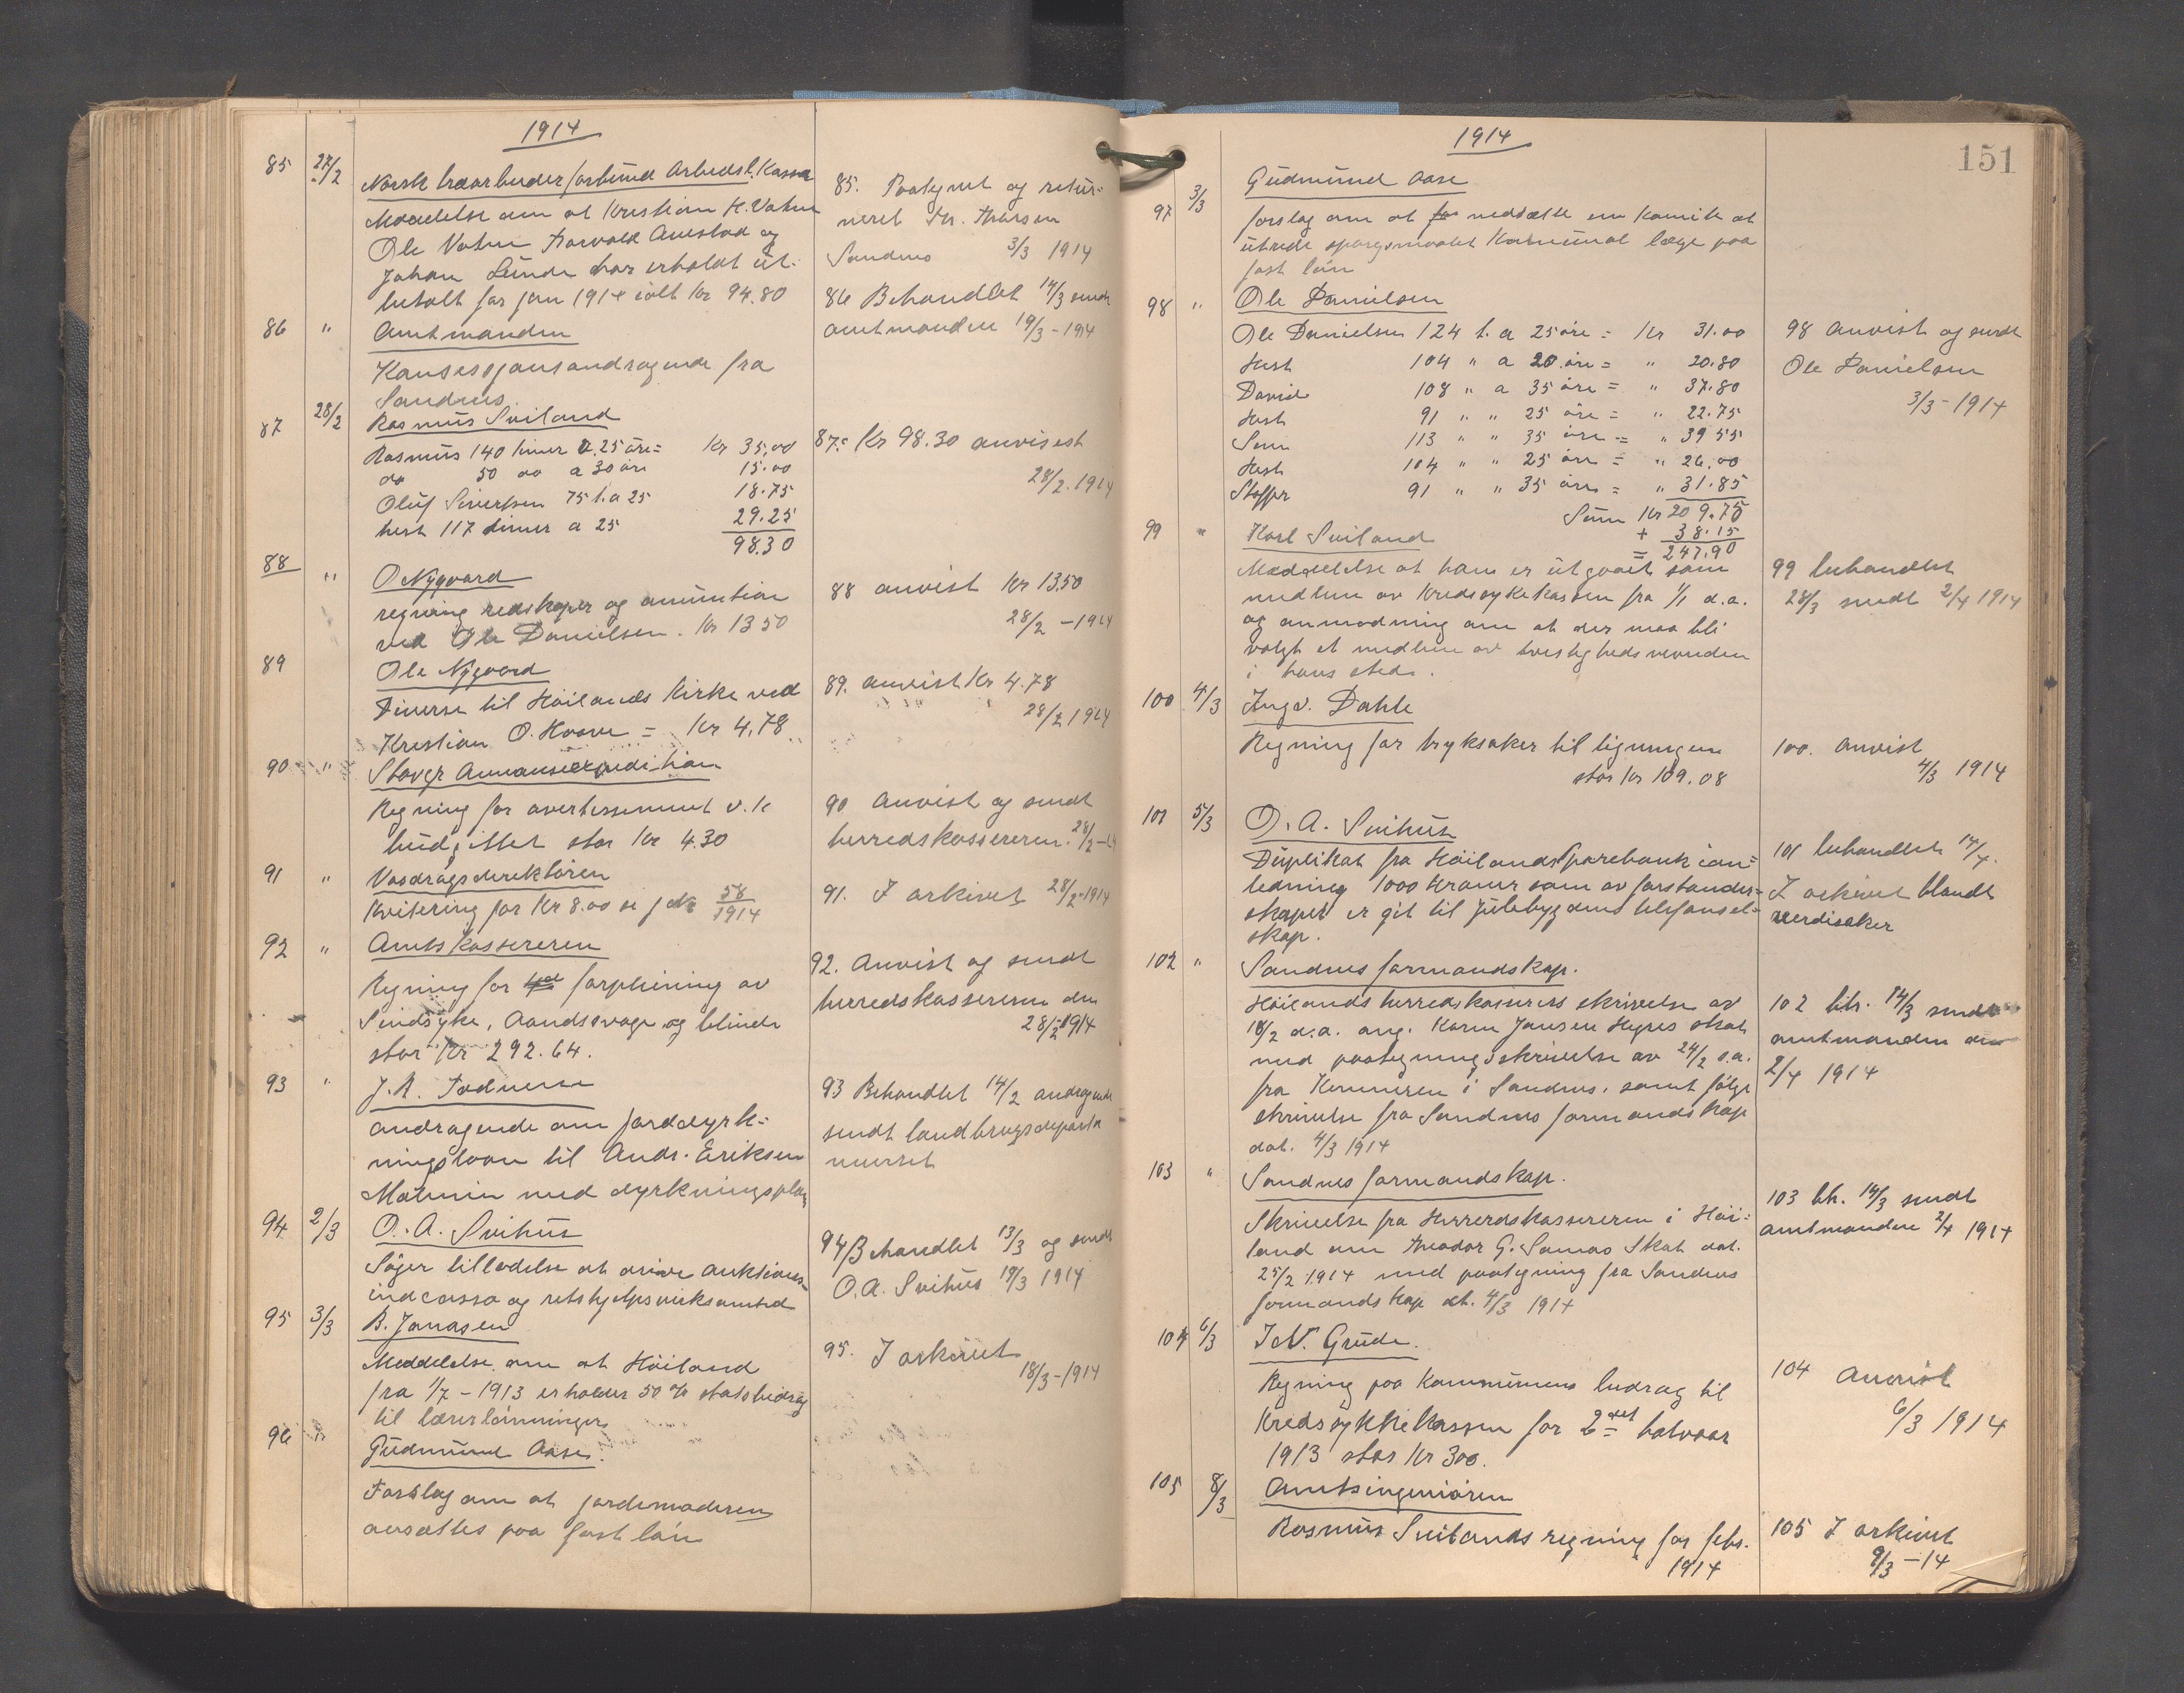 1914
85 27/2 Norsk træarbeiderforbund Arbedsl. Kasse
Meddelelse om at Kristian K. Vatne
Ole Vatne Torvald Auestad og
Johan Lunde har erholdt ut-
betalt for jan 1914 ialt kr 94.80
85. Paategnet og retur-
neret Th. Thorsen
Sandnes 3/3 1914
86 " Amtmanden
Konsesjonsandragende fra
Sandnes
86 Behandlet 14/3 sendt
amtmanden 19/3-1914
87 28/2 Rasmus Sviland
Rasmus 140 timer a 25 øre = Kr 35,00
do 50 do a 30 øre 15.00
Oluf Sivertsen 75 t. a 25 18.75
hest 117 timer a 25 29.25
98.30
87. Kr 98.30 anvisest
28/2.1914
88 " O Nygaard
regning redskaper og amunition
ved Ole Danielsen. Kr 13 50
88 anvist Kr 13.50
28/2 - 1914
89 Ole Nygaard
Diverse til Höilands Kirke ved
Kristian O. Hoave = Kr 4,78
89. anvist Kr 4.78
28/2 1914
90 " Stavgr Annonceexpedition
Regning for avertissement v. k
budgittet stor Kr 4.30
90 Anvist og sendt
herredskassereren. 28/2-14
91 " Vasdragsdirektören
Kvitering for Kr 8.00 se j № 58/1914
91. I arkivet 28/2-1914
92 " Amtskassereren
Regning for forpleining av
Sindsyke, Aandssvage og blinde
stor Kr 292.64.
92. Anvist og sendt
herredskassereren den
28/2-1914
93 " J. R. Todnem
andragende om jorddyrk-
ningslaan til Andr. Eriksen
Malmin med dyrkningsplan
93 Behandlet 14/2 andragende
sendt landbrugsdeparte
mentet
94 2/3 O. A. Svihus
Söger tilladelse at drive auktions-
indcasso og retshjelpsvirksamhed
94 Behandlet 13/3 og sendt
O. A. Svihus 19/3 1914
95 3/3 B. Jonasen
Meddelelse om at Höiland
fra 1/7 - 1913 erholder 50 % statsbidrag
til lærerlönninger
95. I arkivet
18/3-1914
96 " Gudmund Aase.
Forslag om at jordemoderen
ansættes paa fast lön
1914
151
97 3/3 Gudmund Aase
forslag om at nedsætte en komite at
utrede spørgsmaalet Komunal læge paa
fast lön
98 " Ole Danielsen
Ole Danielsen 124 t. a 25 øre = Kr 31.00
Hest 104 " a 20 øre = " 20.80
David 108 " a 35 øre = " 37.80
Hest 91 " " 25 öre = " 22.75
Sven 113 " " 35 öre = " 39 55
Hest 104 " " 25 öre = " 26,00
Stoffer 91 " " 35 öre = " 31.85
Sum Kr 209.75
+ 38.15
= 247.90
98 anvist og sendt
Ole Danielsen
3/3-1914
99 " Karl Sviland
Meddelelse at han er utgaaet som
medlem av Kredssykekassen fra 1/1 d.a.
og anmodning om at der maa bli
valgt et medlem av tvistighedsnevnden
i hans sted.
99 behandlet
28/3 sendt 2/4 1914
100 4/3 Ingv. Dahle
Regning for tryksaker til ligningen
stor Kr 109.08
100. Anvist
4/3 1914
101 5/3 O. A. Svihus
Duplikat fra Höilands Sparebank ian-
ledning 1000 Kroner som av forstander-
skapet er git til Julebygdens telefonsel-
skap.
101 behandlet 14/4.
I arkivet blandt
verdisaker
102 " Sandnes formandskap.
Höilands herredskasserers skrivelse av
18/2 d.a. ang. Karen Jansen Hegres skat
med paategningsskrivelse av 24/2 s.a.
fra Kemneren i Sandnes. samt følge
skrivelse fra Sandnes formandskap
dat. 4/3 1914
102 bh. 14/3 sendt
amtmanden den
2/4 1914
103 " Sandnes formandskap.
Skrivelse fra Herredskassereren i Höi-
land om Theodor G. Somas Skat dat.
25/2 1914 med paategning fra Sandnes
formandskap dt. 4/3 1914
103 bh. 14/3 sendt
amtmanden 2/4 1914
104 6/3 I N. Grude.
Regning paa kommunens bidrag til
Kredssykkekassen for 2det halvaar
1913 stor Kr 300.
104 Anvist
6/3 1914
105 8/3 Amtsingeniören
Rasmus Svilands regning for febr.
1914
105 I arkivet
9/3-14